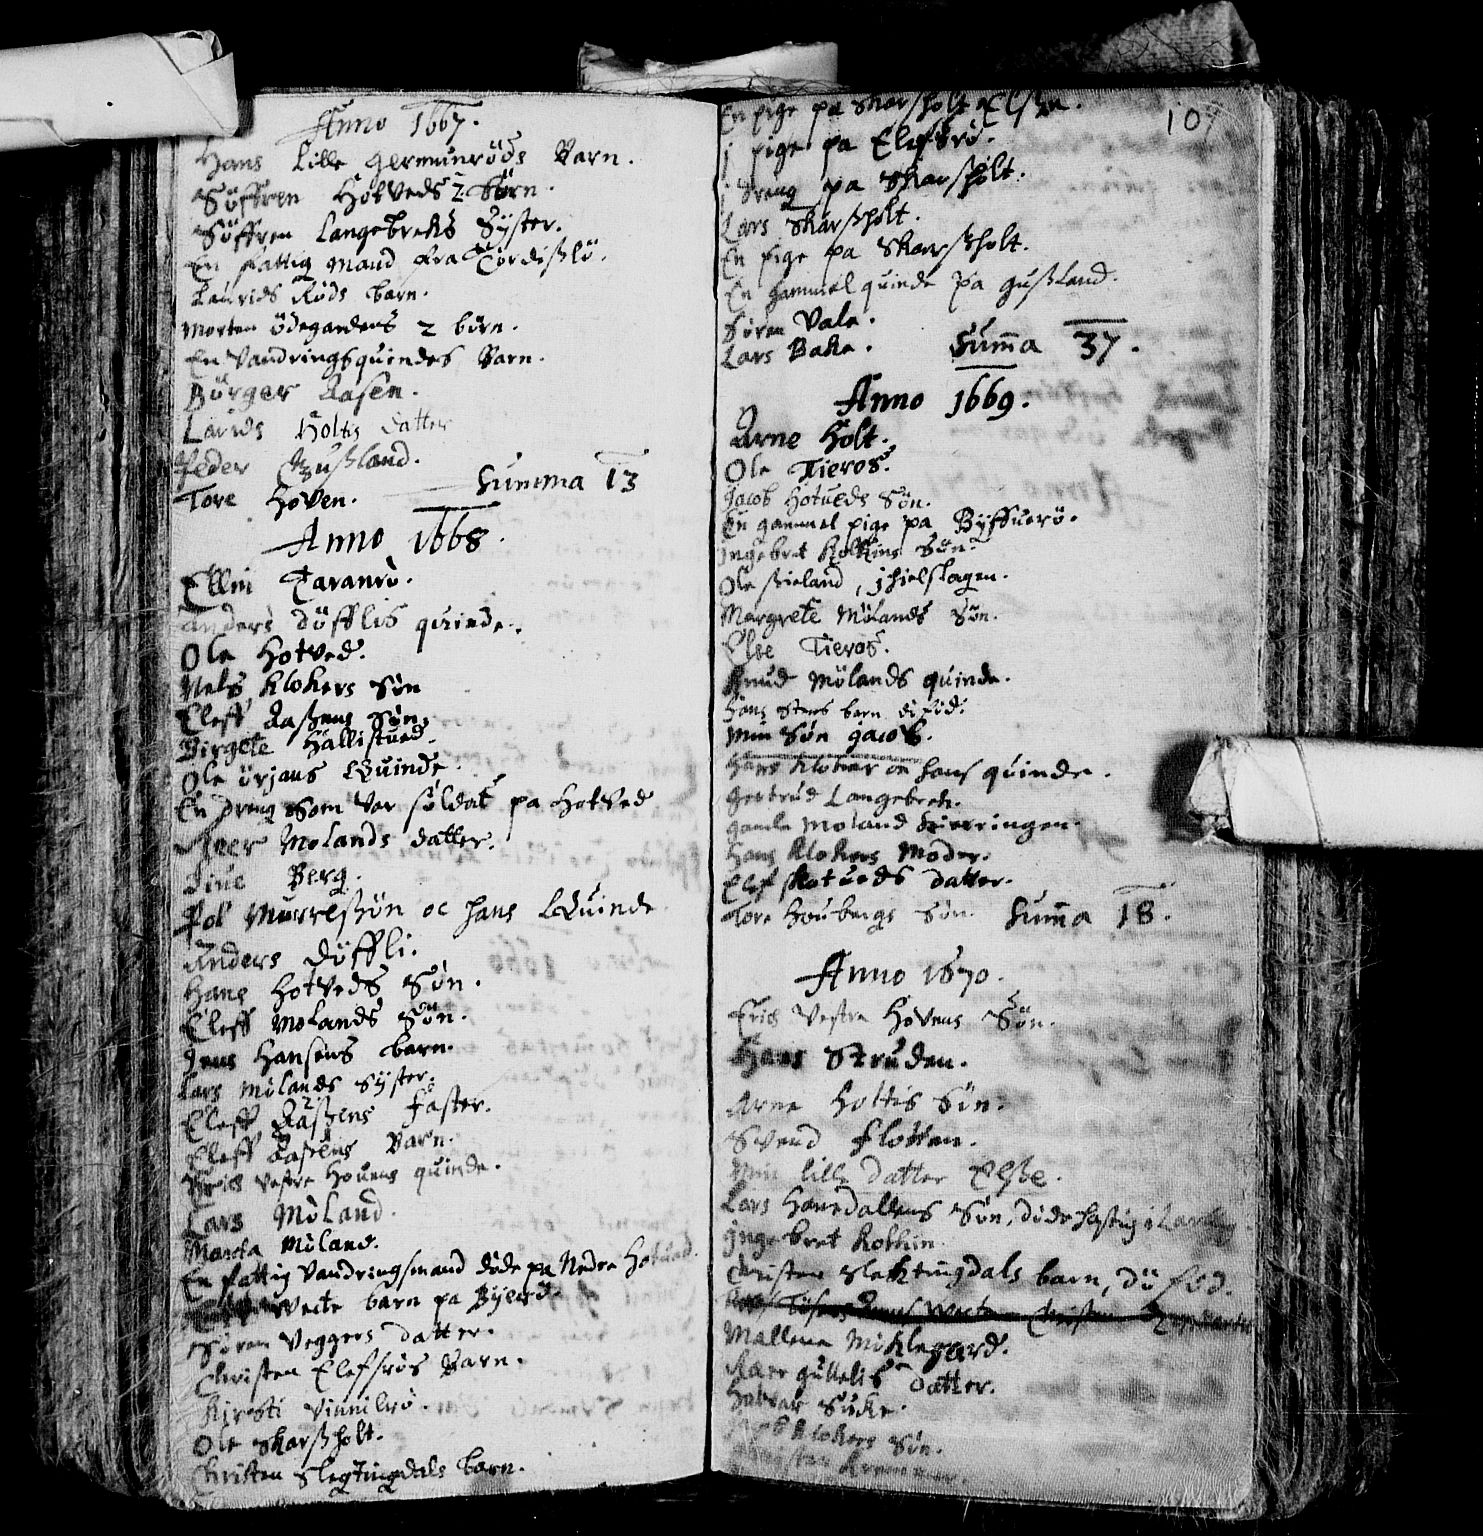 Anno 1667.
Hans Lille Germunröds Barn.
Söffren Hotveds 2 Börn.
Söffren Langebreks Syster.
En fattig Mand fra Tördißlö.
Laurids Röds barn.
Morten Ödegardens 2 börn.
En Vandringsquindes Barn.
Börger Aasen.
Larids Holtis datter
Peder Gußland.
Tore Hoven. Summa 13
Anno 1668.
Ellin Taranrö.
Anders döfflis quinde.
Ole Hotved.
Nels Klokers Sön
Eleff Aaßens Sön.
Birgete Hallistued.
Ole örjans Quinde.
En dreng som var soldat pa Hotved
Aeer Molands datter.
Berg.
Pol Murrelßön oc hans Quinde
Anders Döffli.
Hans Hotveds Sön.
Eleff Molands Sön.
Jens Hansens barn.
Lars Mölands Syster.
Eleff Aaßens Faster.
Eleff Aasens Barn.
Erich Vestre Houens quinde.
Lars Möland.
Marta Möland.
En fattig Vandringsmand döde pa Nedre Hotued.
barn pa Byerö.
Sören Veggers datter.
Christen Elefsrös Barn.
Kirsti Vinnilrö.
Ole Skarßholt.
Christen Slegtingdals barn.
107
En pige pa Skarßholt
j pige pa Elefsrö.
j dreng pa Skarßholt.
Lars Skarßholt.
En pige pa Skarßholt.
En gammel quinde pa gußland.
Sören Vale.
Lars Bake. Suma 37.
Anno 1669.
Arne Holt.
Ole Tieros.
Jacob Hotueds Sön.
En gammel pige pa Byffuerö.
Ingebret Kolkins Sön.
Ole ßieland, ihielslagen.
Margrete Mölands Sön.
Else Tieros.
Knud Mölands quinde.
Hans Stens barn döfod.
Min Sön Jacob.
Hans Klokar oc hans quinde.
Gertrud Langebrek.
gamle Moland Kierringen.
Hans Klokers Moder.
Elef Hotueds datter.
Tore Houbergs Sön. Suma 18.
Anno 1670.
Erich Vestre Hovens Sön.
Hans Struden.
Arne Holtis Sön.
Svend Flotten.
Min lille datter Elsbe.
Lars Hanedallens Sön, döde hastig i
Ingebret Kolkin
Christen Slektingdals barn, dö fod.
Mallene Miklegard.
Aaer gullelis datter.
Halvor Sucke.
Klokers Sön.